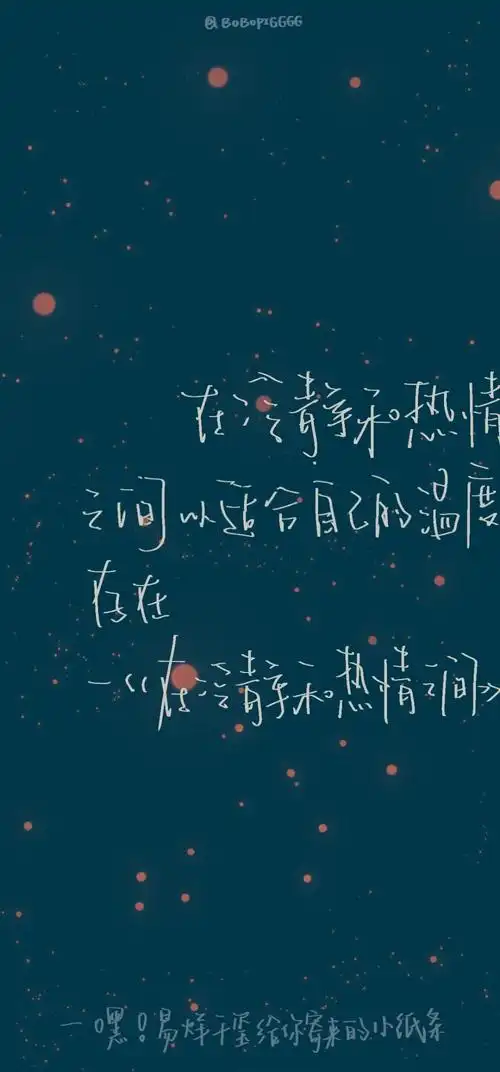 @BOBOPZGGGG
在冷静和热情
之间以适合自己的温度
存在
—《在冷静和热情之间》
—嘿！易烊千玺给你寄来的小纸条